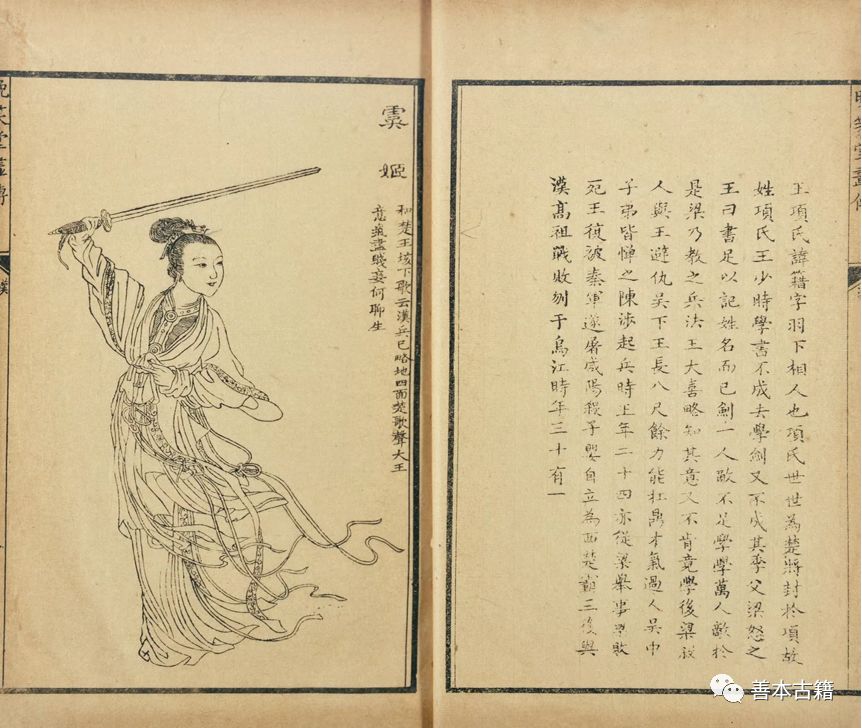 晚笑堂畫傳
王項氏諱籍字羽下相人也項氏世世為楚將封於項故
姓項氏王少時學書不成去學劍又不成其季父梁怒之
王曰書足以記姓名而已劍一人敵不足學學萬人敵於
是梁乃教之兵法王大喜略知其意又不肯竟學後梁殺
人與王避仇吳下王長八尺餘力能扛鼎才氣過人吳中
子弟皆憚之陳涉起兵時王年二十四亦從梁舉事梁敗
死王復被秦軍遂屠咸陽殺子嬰自立為西楚霸王後與
漢高祖戰敗刎于烏江時年三十有一
虞姬
和楚王垓下歌云漢兵已略地四面楚歌聲大王
意氣盡賤妾何聊生
晚笑堂畫傳
漢
善本古籍